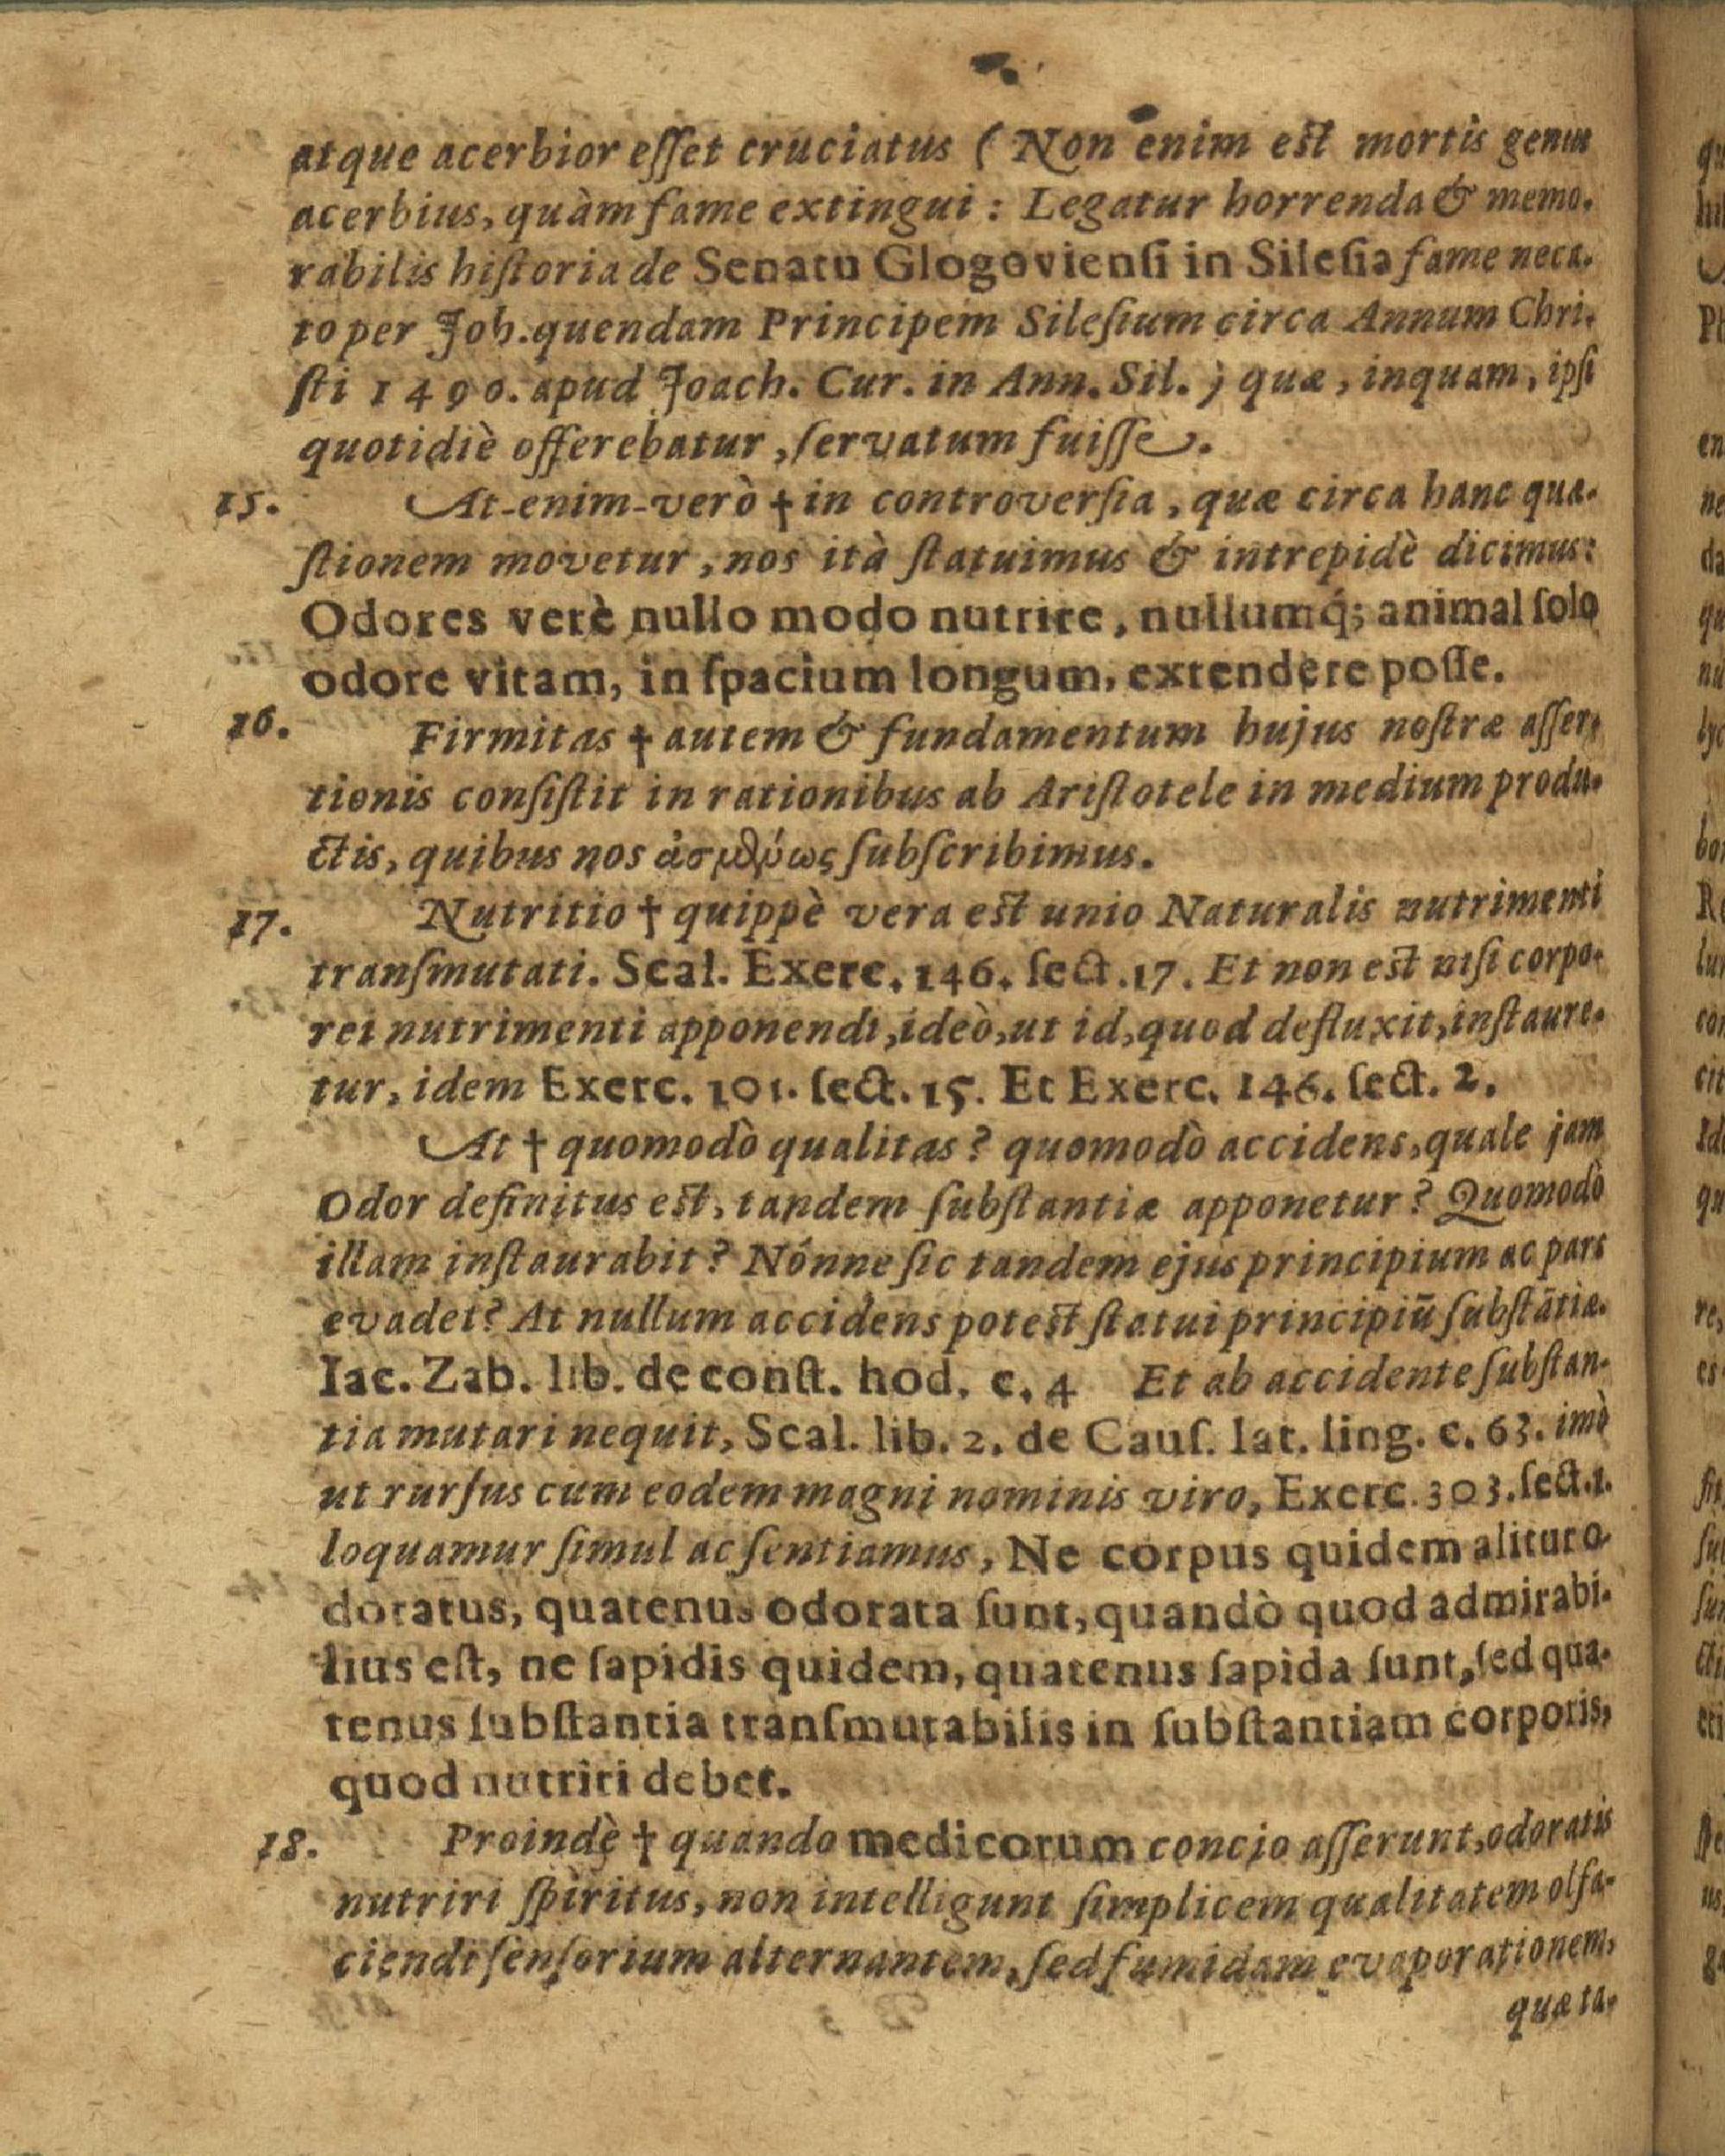 atque acerbior eſſet cruciatus ( Non enim eſt mortis genus
acerbius, quàm fame extingui : Legatur horrenda & memo-
rabilis hiſtoria de Senatu Glogovienſi in Sileſia fame neca-
to per Joh. quendam Principem Sileſium circa Annum Chri-
ſti 1490. apud Joach. Cur. in Ann. Sil. ) quæ, inquam, ipſi
quotidiè offerebatur, ſervatum fuiſſe.
15. At-enim-verò † in controverſia, quæ circa hanc quæ-
ſtionem movetur, nos ità ſtatuimus & intrepidè dicimus:
Odores verè nullo modo nutrire, nullumq́; animal ſolo
odore vitam, in ſpacium longum, extendere poſſe.
16. Firmitas † autem & fundamentum hujus noſtræ aſſer-
tionis conſiſtit in rationibus ab Ariſtotele in medium produ-
ctis, quibus nos ἀσμένως ſubſcribimus.
17. Nutritio † quippè vera eſt unio Naturalis nutrimenti
tranſmutati. Scal. Exerc. 146. ſect. 17. Et non eſt niſi corpo-
rei nutrimenti apponendi, ideò, ut id, quod defluxit, inſtaure-
tur, idem Exerc. 101. ſect. 15. Et Exerc. 146. ſect. 2.
At † quomodò qualitas? quomodò accidens, quale jam
Odor definitus eſt, tandem ſubſtantiæ apponetur? Quomodò
illam inſtaurabit? Nónne ſic tandem ejus principium ac pars
evadet? At nullum accidens poteſt ſtatui principiũ ſubſtãtiæ.
Iac. Zab. lib. de conſt. hod. c. 4 Et ab accidente ſubſtan-
tia mutari nequit, Scal. lib. 2. de Cauſ. lat. ling. c. 63. imò
ut rurſus cum eodem magni nominis viro, Exerc. 303. ſect. 1.
loquamur ſimul ac ſentiamus, Ne corpus quidem alitur o-
doratus, quatenus odorata ſunt, quandò quod admirabi-
lius eſt, ne ſapidis quidem, quatenus ſapida ſunt, ſed qua-
tenus ſubſtantia tranſmutabilis in ſubſtantiam corporis,
quod nutriri debet.
18. Proindè † quando medicorum concio aſſerunt, odoratis
nutriri ſpiritus, non intelligunt ſimplicem qualitatem olfa-
ciendi ſenſorium alternantem, ſed fumidam evaporationem,
quæ ta-